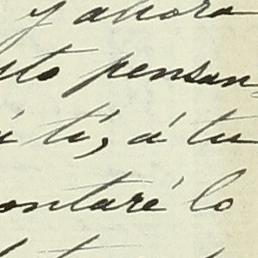 y ahora
sto pensan
á tí, á tu
ontaré lo